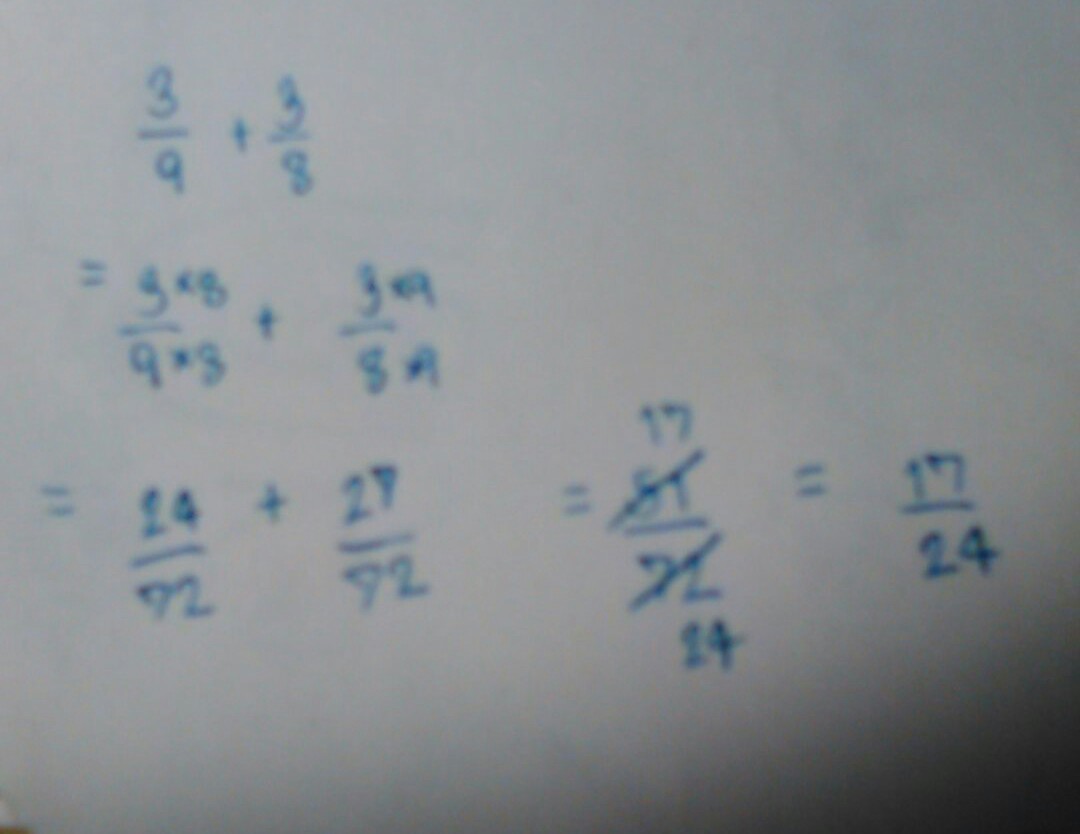 3/9 + 3/8
= 3×8/9×8 + 3×9/8×9
= 24/72 + 27/72 = 51/72 = 17/24
17
24